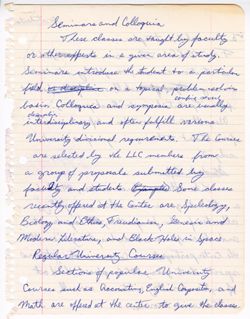 Seminars and Colloquia
These classes are taught by faculty
or other experts in a given area of study.
Seminars introduce the student to a particular
field or discipline or a topical problem solving
basis. Colloquia and symposia are usually
interdisciplinary and often fulfill various
University divisional requirements. The Courses
are selected by the LLC members from
a group of proposals submitted by
faculty and students. Examples Some classes
recently offered at the Center are Speleology,
Biology and Ethics, Freudianism, Genesis and
Modern Literature, and Black Holes in Space.
Regular University Courses
Sections of popular University
Courses such as Accounting, English Composition, and
Math are offered at the center to give the classes